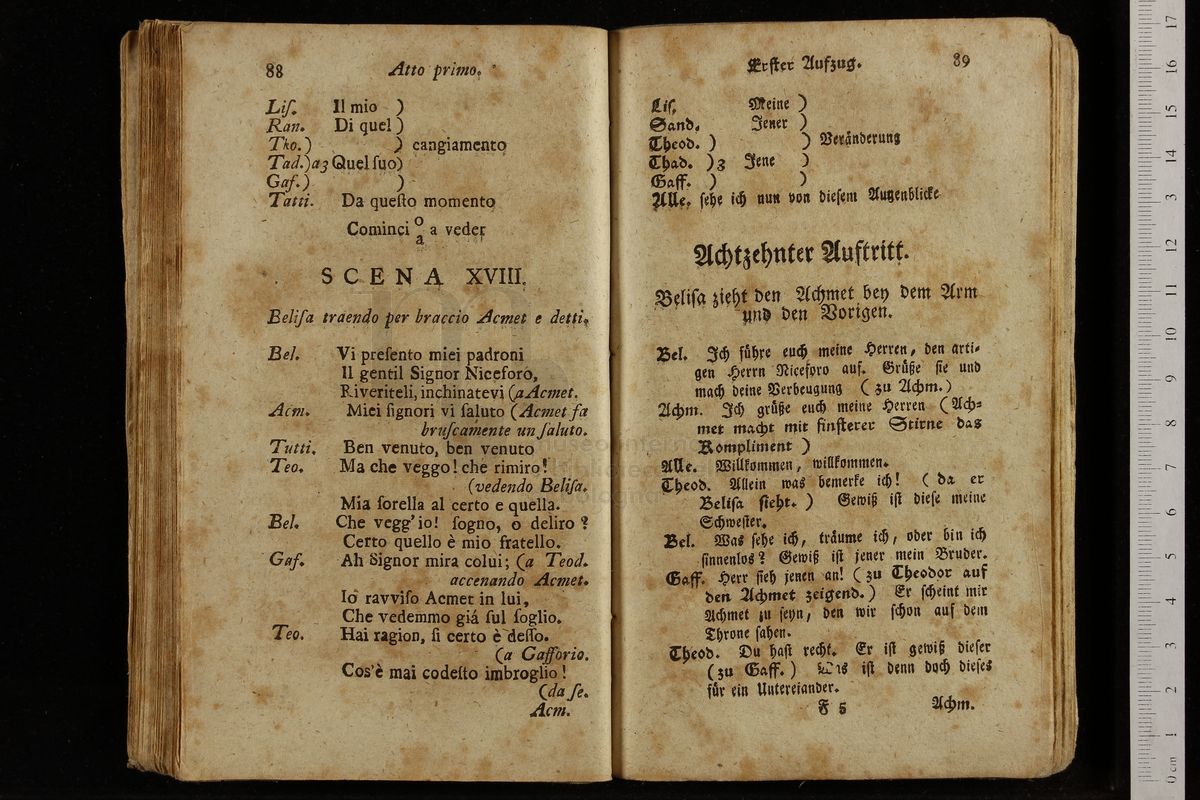 88 Atto primo.
Liſ. Il mio )
Ran. Di quel )
Tho.) ) cangiamento
Tad.)a3 Quel ſuo)
Gaf.) )
Tatti. Da queſto momento
Cominci o/a a veder
SCENA XVIII.
Beliſa traendo per braccio Acmet e detti.
Bel. Vi preſento miei padroni
Il gentil Signor Niceforo,
Riveriteli, inchinatevi (a Acmet.
Acm. Miei ſignori vi ſaluto (Acmet fa
bruſcamente un ſaluto.
Tutti. Ben venuto, ben venuto
Teo. Ma che veggo! che rimiro!
(vedendo Beliſa.
Mia ſorella al certo e quella.
Bel. Che vegg'io! ſogno, o deliro?
Certo quello è mio fratello.
Gaf. Ah Signor mira colui; (a Teod.
accenando Acmet.
Io ravviſo Acmet in lui,
Che vedemmo giá ſul ſoglio.
Teo. Hai ragion, ſi certo è deſſo.
(a Gafforio.
Cos'è mai codeſto imbroglio!
(da ſe.
Acm.
Erſter Aufzug. 89
Liſ. Meine )
Sand. Jener )
Theod. ) ) Veränderung
Thad. )3 Jene )
Gaff. ) )
Alle. ſehe ich nun von dieſem Augenblicke
Achtzehnter Auftritt.
Beliſa zieht den Achmet bey dem Arm
und den Vorigen.
Bel. Ich führe euch meine Herren, den arti-
gen Herrn Niceforo auf. Grüße ſie und
mach deine Verbeugung (zu Achm.)
Achm. Ich grüße euch meine Herren (Ach-
met macht mit finſterer Stirne das
Kompliment )
Alle. Willkommen, willkommen.
Theod. Allein was bemerke ich! ( da er
Beliſa ſieht. ) Gewiß iſt dieſe meine
Schweſter.
Bel. Was ſehe ich, träume ich, oder bin ich
ſinnenlos? Gewiß iſt jener mein Bruder.
Gaff. Herr ſieh jenen an! (zu Theodor auf
den Achmet zeigend.) Er ſcheint mir
Achmet zu ſeyn, den wir ſchon auf dem
Throne ſahen.
Theod. Du haſt recht. Er iſt gewiß dieſer
(zu Gaff.) Was iſt denn doch dieſes
für ein Untereiander.
F 5 Achm.
0 cm 1 2 3 4 5 6 7 8 9 10 11 12 13 14 15 16 17